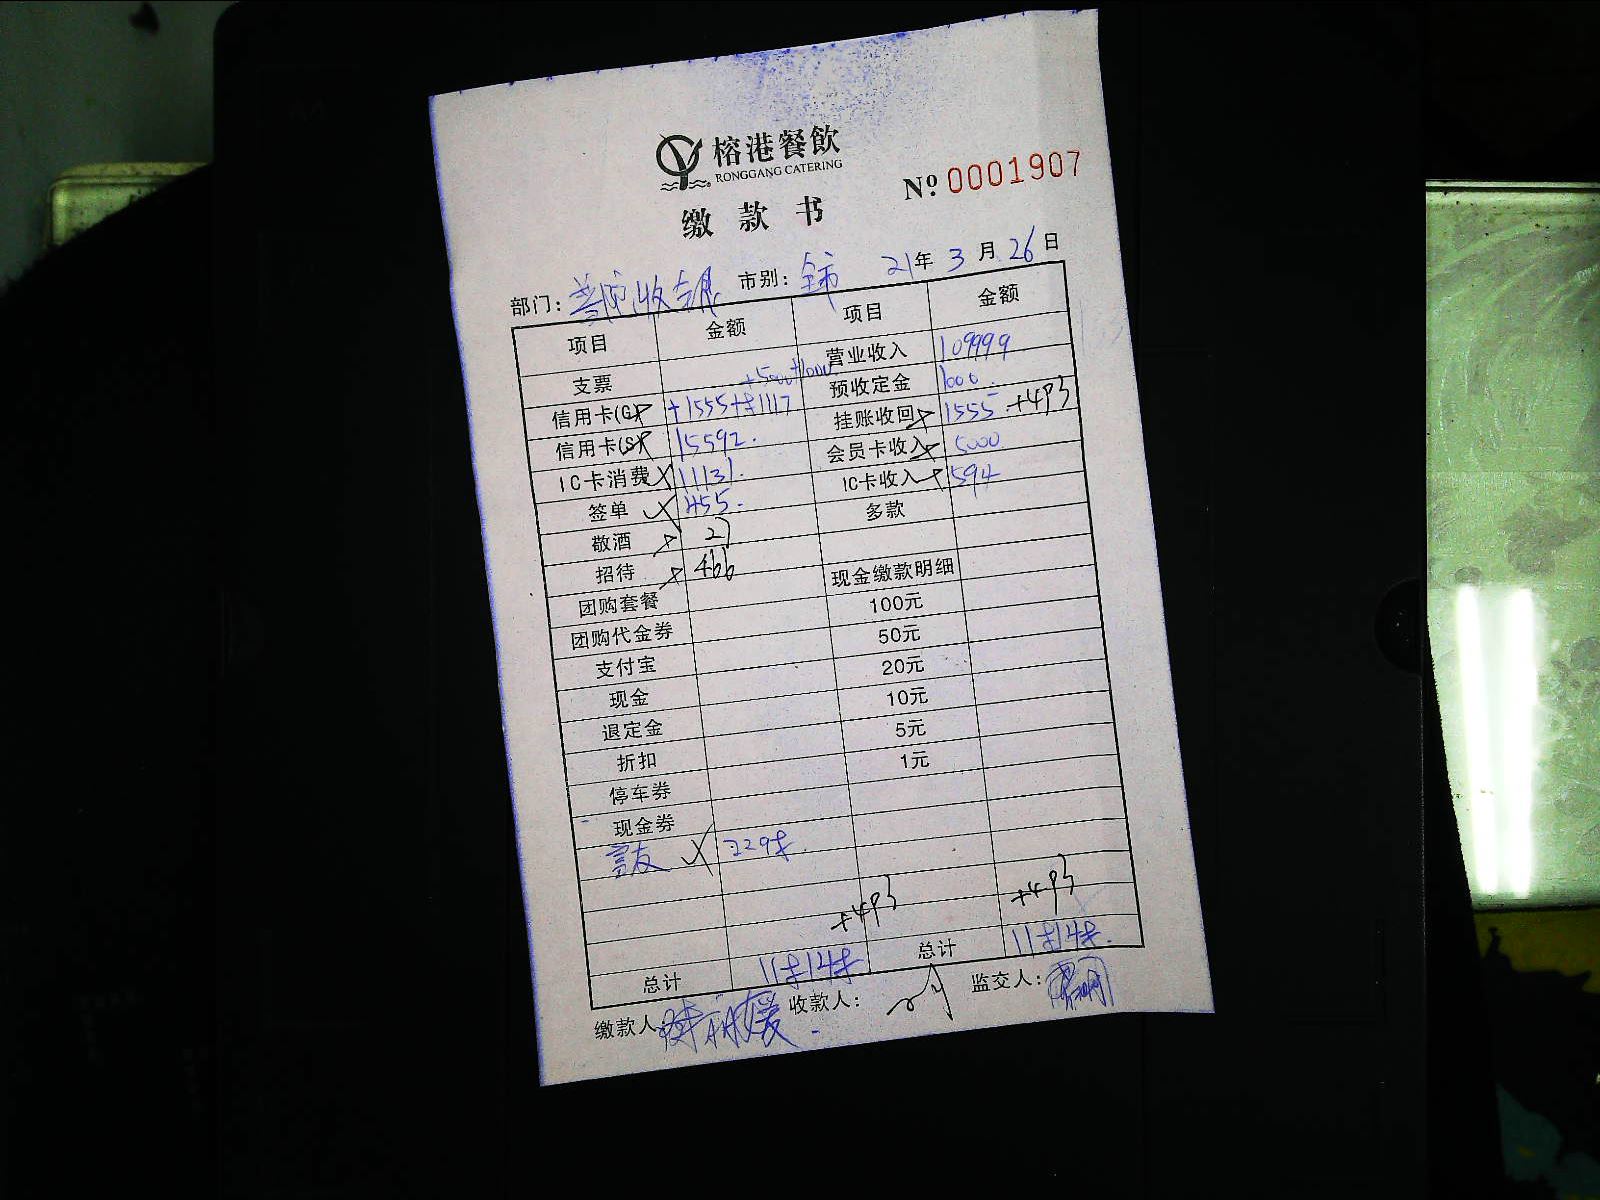 榕港餐飲
RONGGANG CATERING
№ 0001907
缴款书
部门: 普陀收银 市别: 全市 21年 3月 26日
项目 金额 项目 金额
支票 营业收入 109999
+5000+1000 预收定金 1000.
信用卡(G) 挂账收回 1555 +493
信用卡(S) 15592. 会员卡收入 5000
IC卡消费 11131. IC卡收入 594
签单 455. 多款
敬酒 27
招待 466 现金缴款明细
团购套餐 100元
团购代金券 50元
支付宝 20元
现金 10元
退定金 5元
折扣 1元
停车券
现金券
+493 +493
总计 总计
缴款人: 收款人: 监交人: